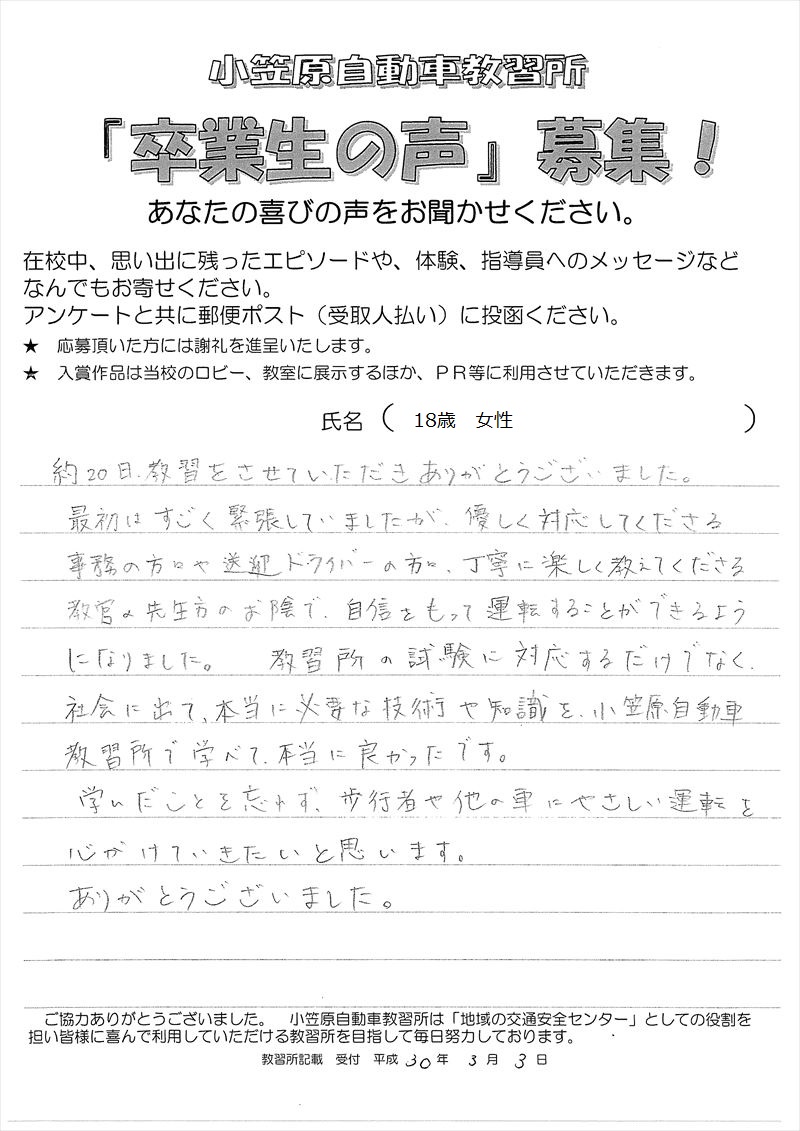 小笠原自動車教習所
「卒業生の声」募集！
あなたの喜びの声をお聞かせください。
在校中、思い出に残ったエピソードや、体験、指導員へのメッセージなど
なんでもお寄せください。
アンケートと共に郵便ポスト（受取人払い）に投函ください。
★　応募頂いた方には謝礼を進呈いたします。
★　入賞作品は当校のロビー、教室に展示するほか、ＰＲ等に利用させていただきます。
氏名（　18歳　女性　）
約20日、教習をさせていただきありがとうございました。
最初はすごく緊張していましたが、優しく対応してくださる
事務の方々や送迎ドライバーの方々、丁寧に楽しく教えてくださる
教官の先生方のお陰で、自信をもって運転することができるよう
になりました。　教習所の試験に対応するだけでなく、
社会に出て、本当に必要な技術や知識を、小笠原自動車
教習所で学べて、本当に良かったです。
学んだことを忘れず、歩行者や他の車にやさしい運転を
心がけていきたいと思います。
ありがとうございました。
ご協力ありがとうございました。　小笠原自動車教習所は「地域の交通安全センター」としての役割を
担い皆様に喜んで利用していただける教習所を目指して毎日努力しております。
教習所記載　受付　平成 30 年 3 月 3 日